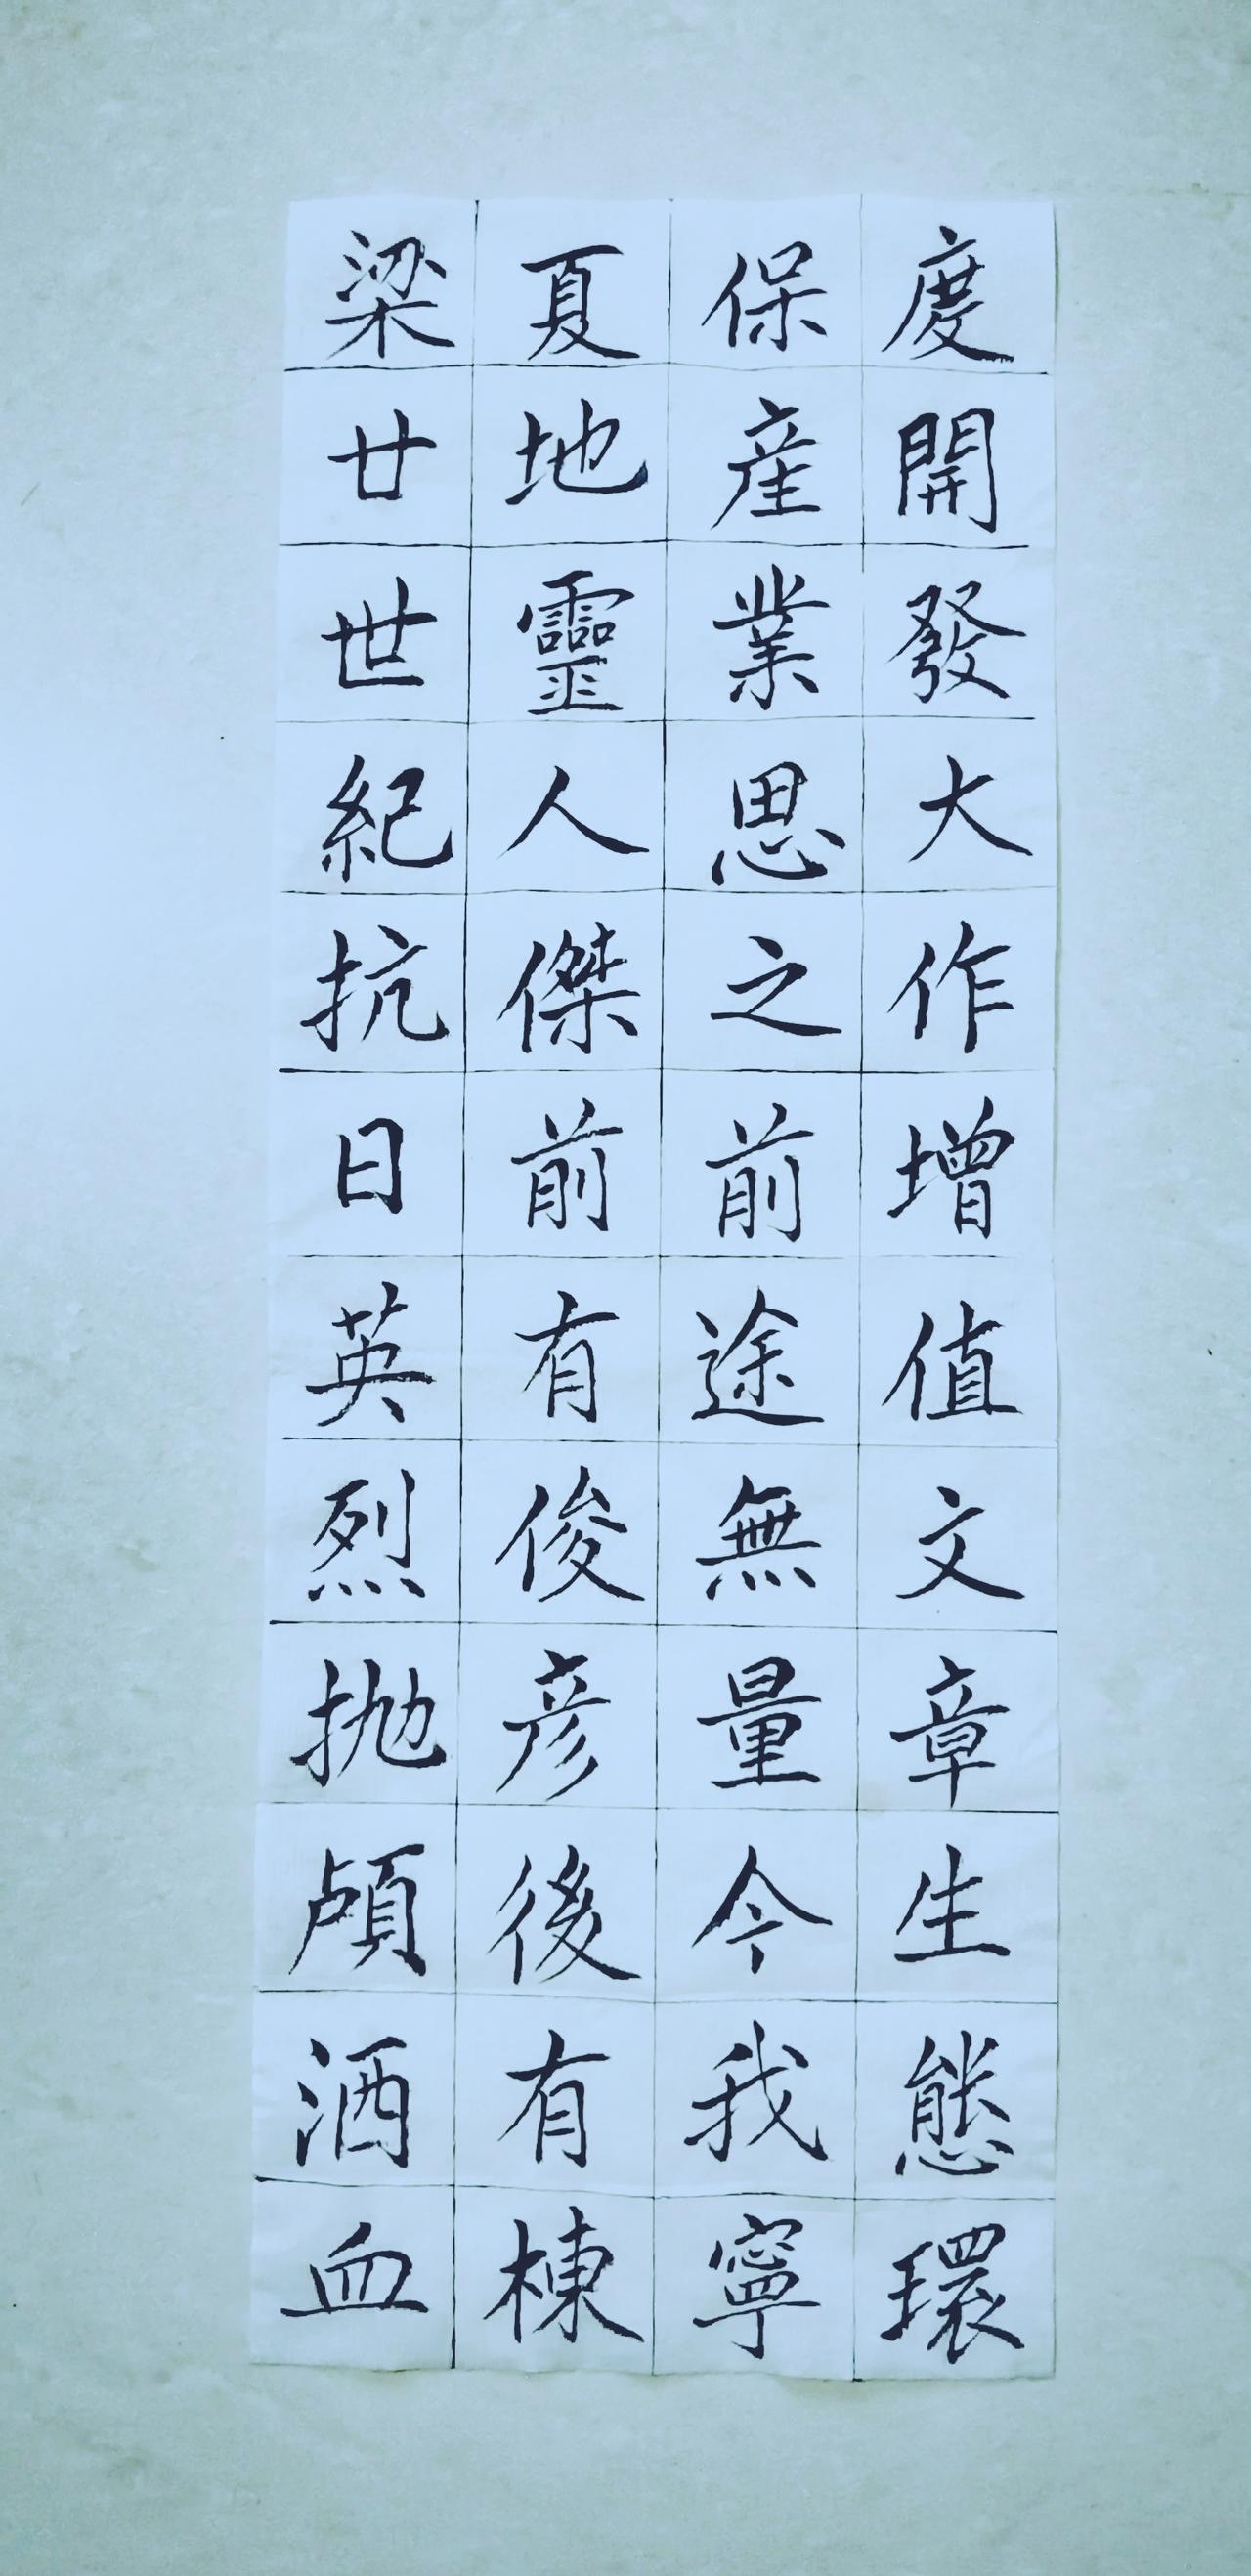 度開發大作增值文章生態環
保產業思之前途無量今我寧
夏地靈人傑前有俊彥後有棟
梁廿世紀抗日英烈抛顱洒血